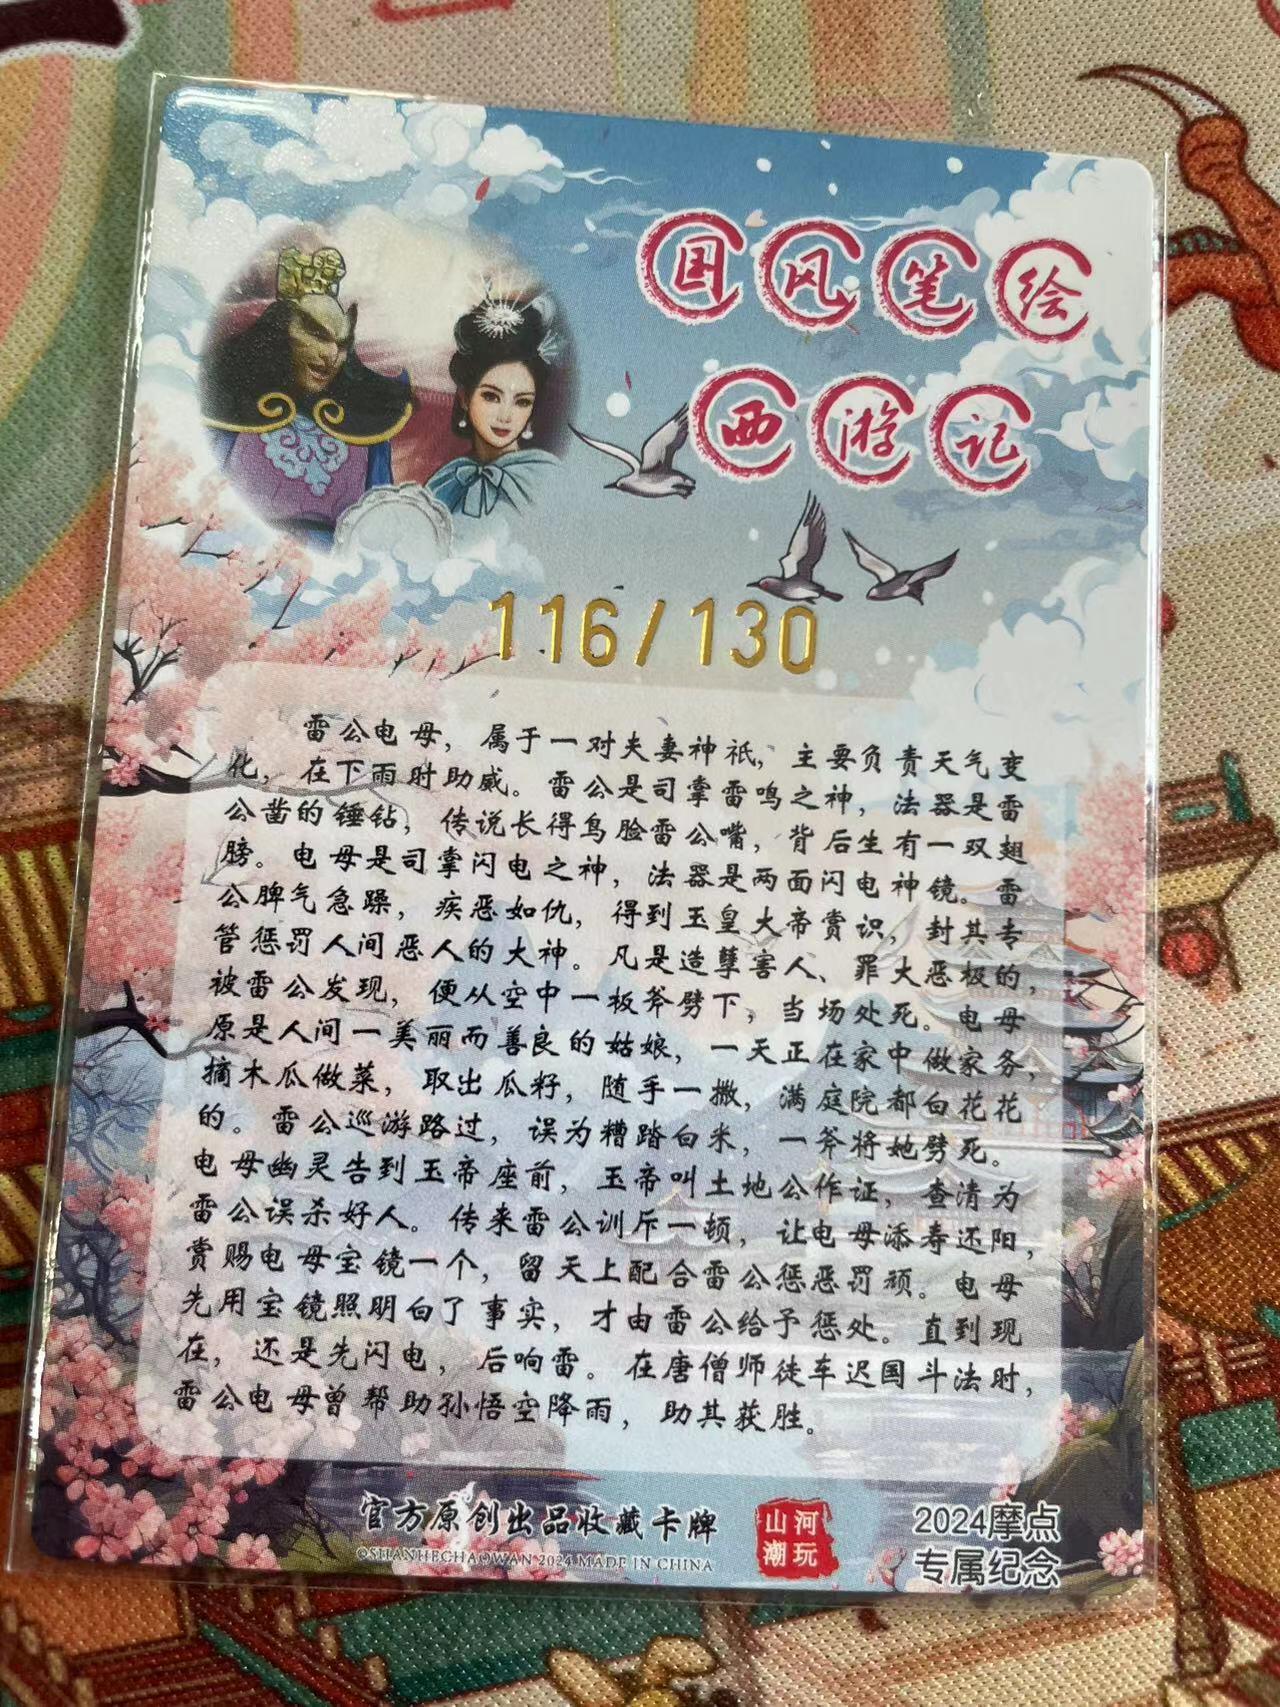 国风笔绘
西游记
116/130
雷公电母，属于一对夫妻神祇，主要负责天气变
化，在下雨时助威。雷公是司掌雷鸣之神，法器是雷
公凿的锤钻，传说长得鸟脸雷公嘴，背后生有一双翅
膀。电母是司掌闪电之神，法器是两面闪电神镜。雷
公脾气急躁，疾恶如仇，得到玉皇大帝赏识，封其专
管惩罚人间恶人的大神。凡是造孽害人、罪大恶极的，
被雷公发现，便从空中一板斧劈下，当场处死。电母
原是人间一美丽而善良的姑娘，一天正在家中做家务，
摘木瓜做菜，取出瓜籽，随手一撒，满庭院都白花花
的。雷公巡游路过，误为糟踏白米，一斧将她劈死。
电母幽灵告到玉帝座前，玉帝叫土地公作证，查清为
雷公误杀好人。传来雷公训斥一顿，让电母添寿还阳，
赏赐电母宝镜一个，留天上配合雷公惩恶罚顽。电母
先用宝镜照明白了事实，才由雷公给予惩处。直到现
在，还是先闪电，后响雷。在唐僧师徒车迟国斗法时，
雷公电母曾帮助孙悟空降雨，助其获胜。
官方原创出品收藏卡牌
©SHANHECHAOWAN 2024 MADE IN CHINA
山河
潮玩
2024摩点
专属纪念